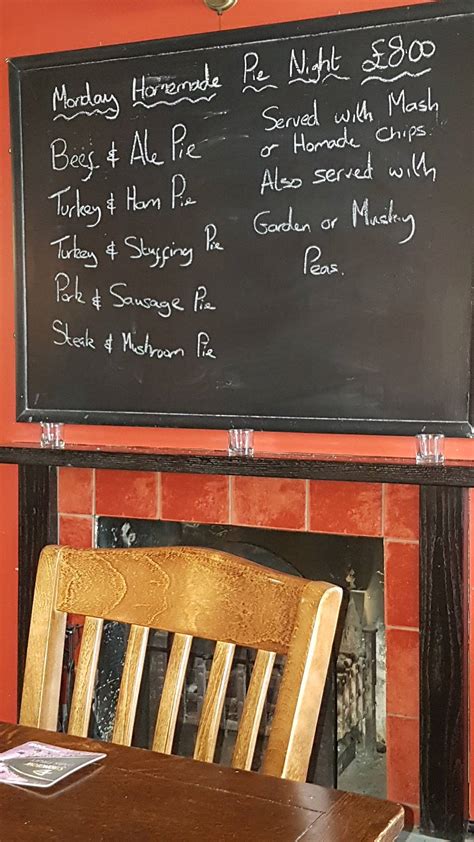 Monday Homemade Pie Night £8.00
Beef & Ale Pie
Turkey & Ham Pie
Turkey & Stuffing Pie
Pork & Sausage Pie
Steak & Mushroom Pie
Served with Mash
or Homade Chips.
Also served with
Garden or Mushy
Peas.